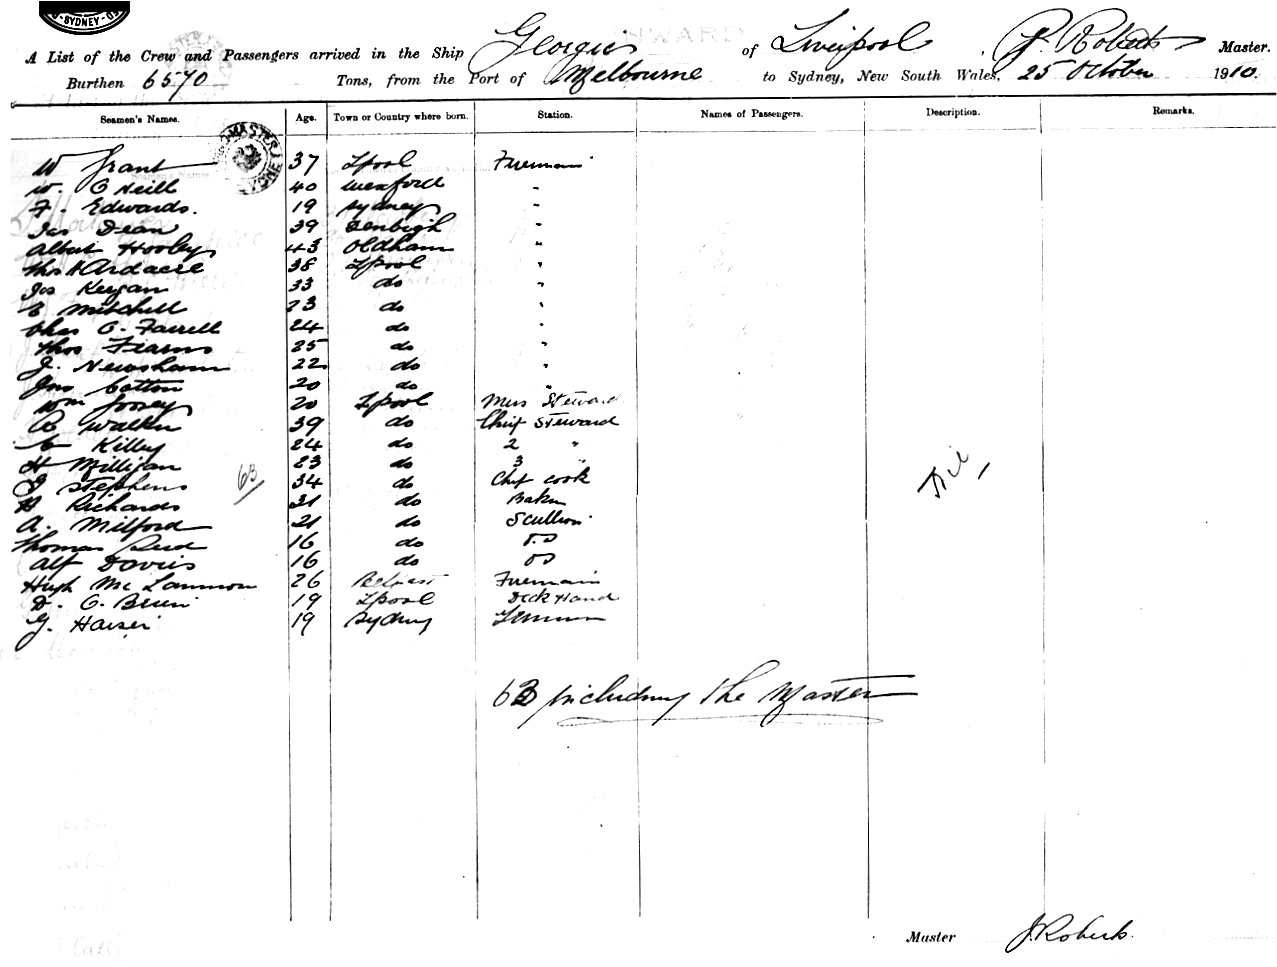 SYDNEY
A List of the Crew and Passengers arrived in the Ship Georgic of Liverpool, J. Roberts Master.
Burthen 6570 Tons, from the Port of Melbourne to Sydney, New South Wales, 25 October 1910.
Seamen's Names. Age. Town or Country where born. Station. Names of Passengers. Description. Remarks.
W Grant 37 Lpool Fireman
W. O Neill 40 Wexford "
F. Edwards. 19 Sydney "
Jas Dean 39 Denbigh "
Albert Hooley 43 Oldham "
Thos HArdacre 38 Lpool "
Jos Keegan 33 do "
Mitchell 23 do "
Chas O. Farrell 24 do "
Thos Fearns 25 do "
J. Newsham 22 do "
Jno Cotton 20 do "
Wm 20 Lpool Mess Steward
A Walker 39 do Chief Steward
C Killey 24 do 2 "
H Milligan 23 do 3 "
J Stephens 34 do Chef cook
63
H Richards 31 do Baker
A. Milford 21 do Scullion
Thomas Reid 16 do O.S
Alf Davies 16 do OS
Hugh Mc Lammon 26 Belfast Fireman
D. O. Brien 19 Lpool Deck Hand
G. 19 Sydney
Nil
63 including the Master
Master J. Roberts.